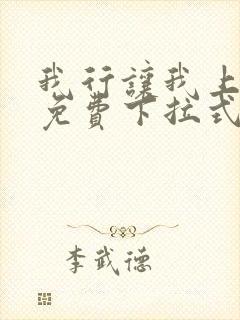 我行讓我上
免費下拉式
李武德